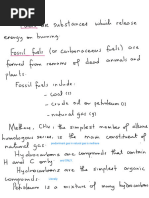 Fuels are substances which release
energy on burning.
Fossil fuels (or carbonaceous fuels) are
formed from remains of dead animals and
plants
Fossil fuels include:
- coal (s)
- crude oil or petroleum (l)
- natural gas (g)
Methane, CH4, the simplest member of alkane
homologous series, is the main constituent
of natural gas
Hydrocarbons are compounds that contain
H and C only
Hydrocarbons are the simplest organic
compounds
Petroleum is a mixture of many hydrocarbons